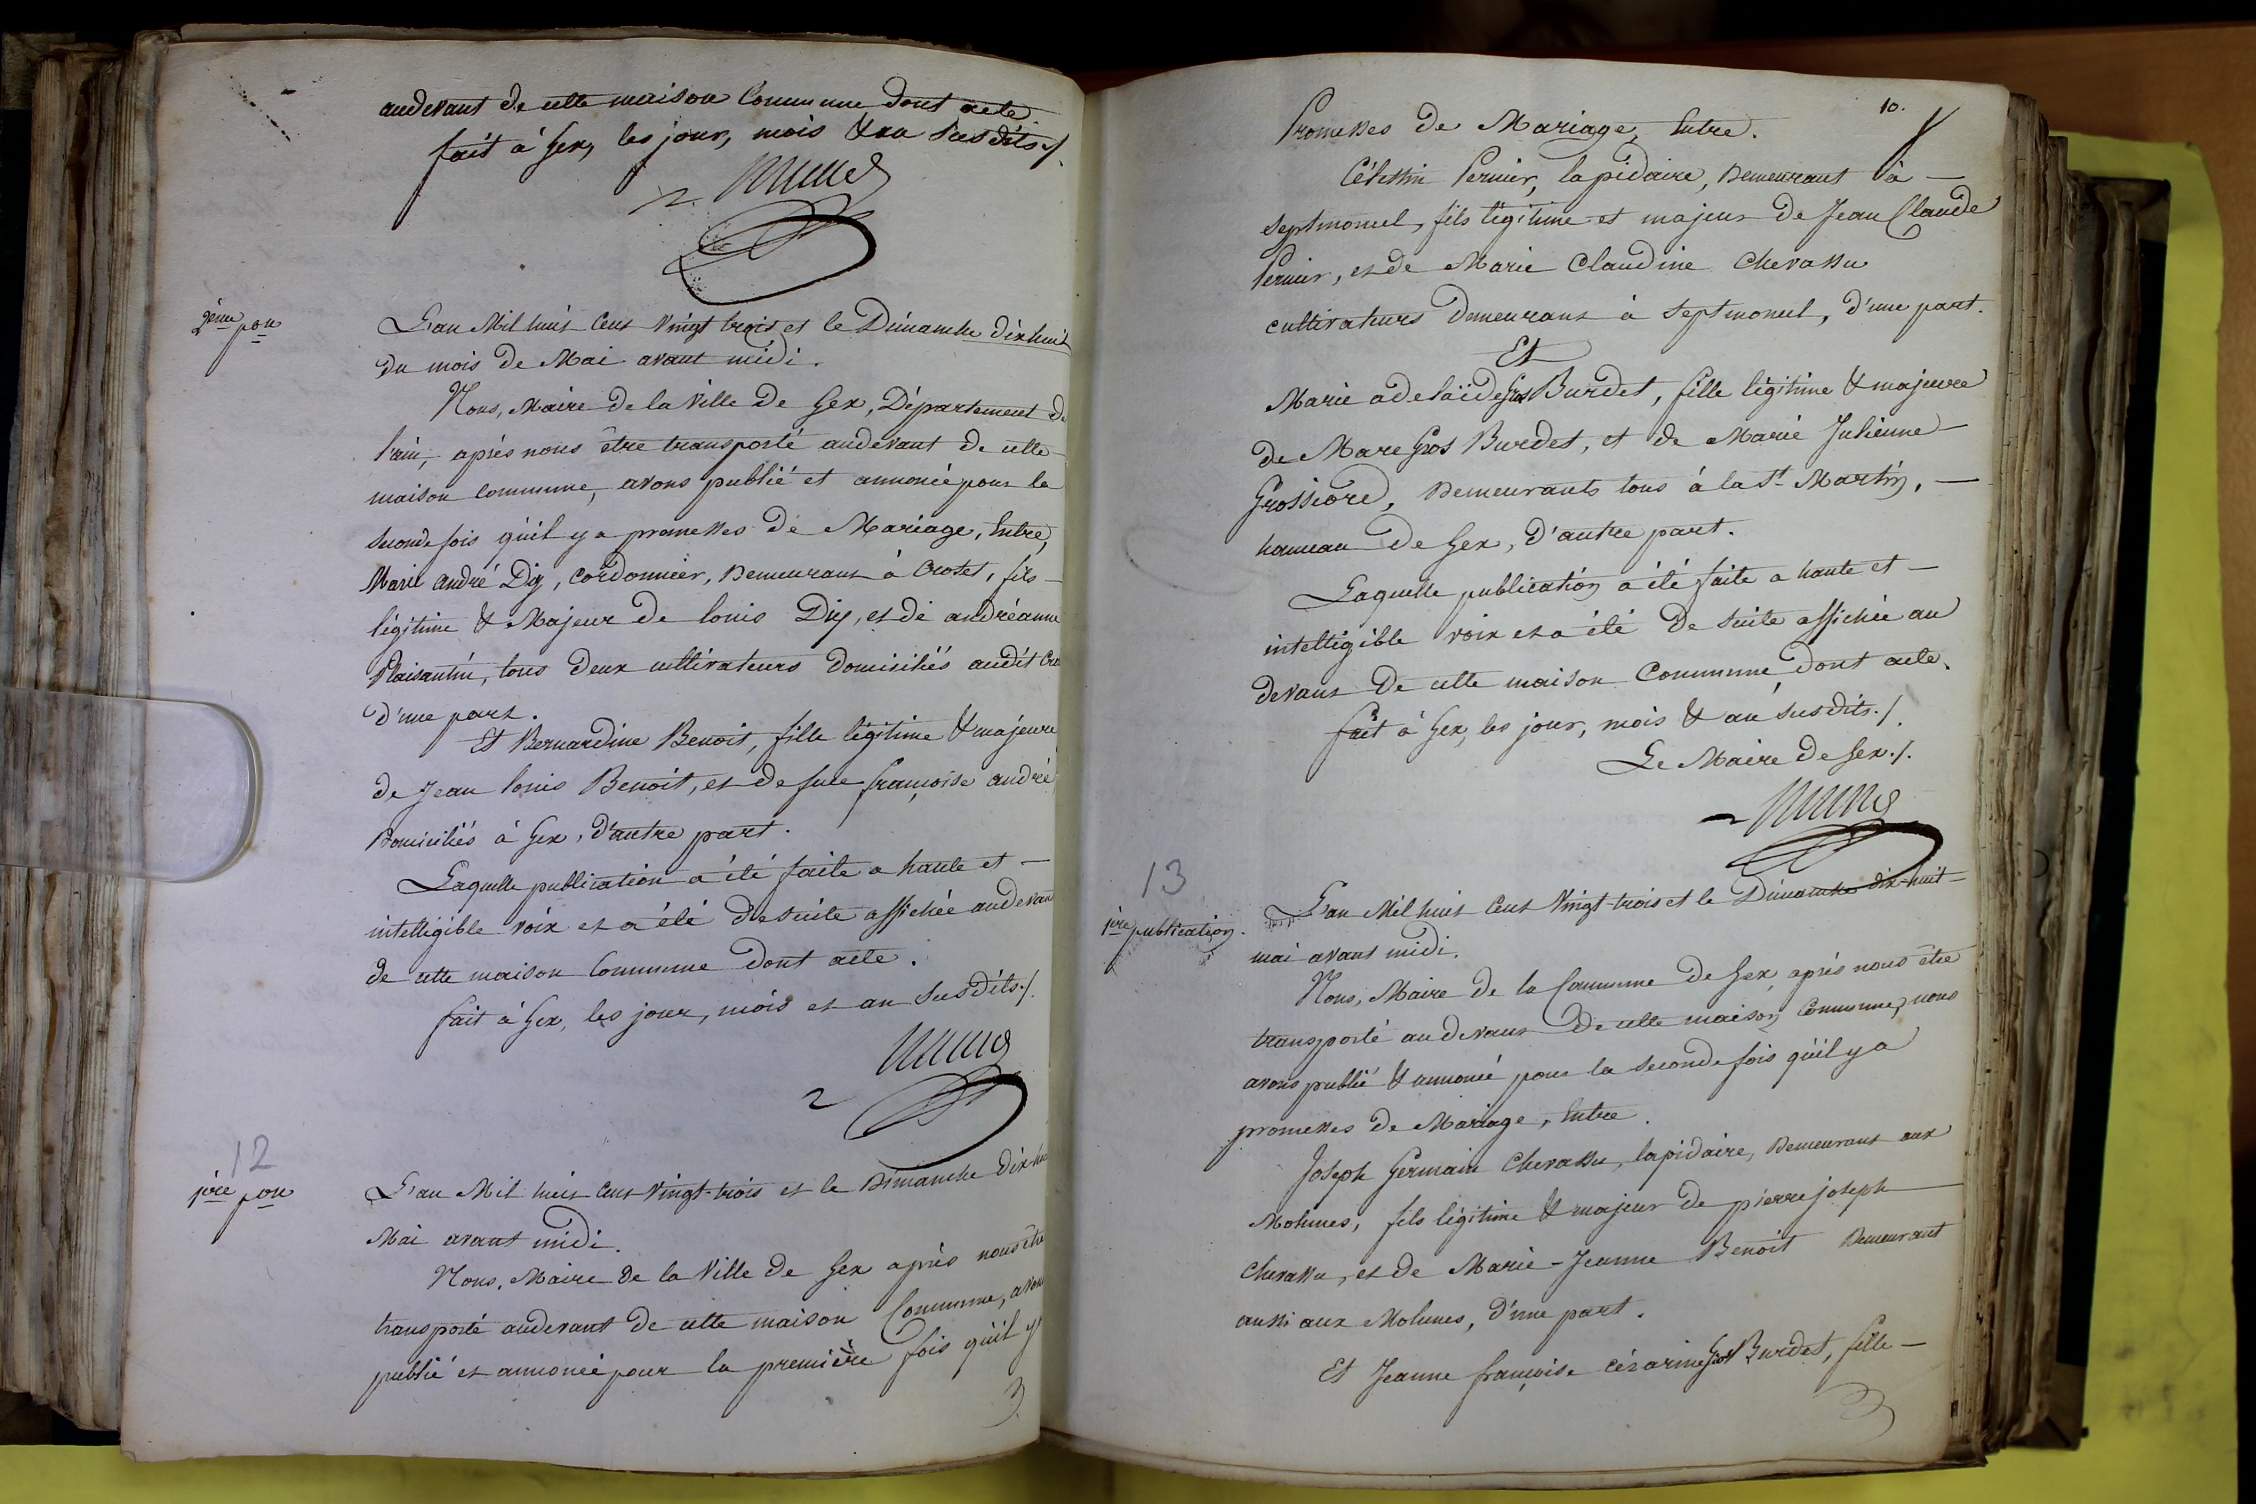 audevant de cette maison Commune dont acte.
fait à Gex, les jour, mois & an susdits ./.
2ème pon
L'an Mil huit Cent Vingt trois et le Dimanche dix huit
du mois de Mai avant midi.
Nous, Maire de la Ville de Gex, Département de
l'ain, après nous être transporté audevant de cette
maison commune, avons publié et annoncé pour la
seconde fois qu'il y a promesses de Mariage, Entre,
Marie andré Dig, cordonnier, Demeurant à Crozet, fils
légitime & Majeur de louis Dig, et de andréanne
Plaisantin, tous deux cultivateurs domiciliés audit Cro
d'une part.
Et Bernardine Benoit, fille légitime & majeure
de Jean louis Benoit, et de feue françoise andré
Domiciliés à Gex, d'autre part.
Laquelle publication a été faite a haute et
intelligible voix et a été de suite affichée audevant
de cette maison Commune dont acte.
fait à Gex, les jour, mois et an susdits ./.
12
1ère pon
L'an Mil huit Cent Vingt-trois et le Dimanche dix hui
Mai avant midi.
Nous, Maire de la Ville de Gex après nous être
transporté audevant de cette maison Commune, avons
publié et annoncé pour la première fois qu'il y
10.
Promesses de Mariage, Entre.
Célestin Pernier, lapidaire, Demeurant à
Septmoncel, fils légitime et majeur de Jean Claude
Pernier, et de Marie Claudine Chevassu
cultivateurs Demeurant à Septmoncel, d'une part.
Et
Marie adelaïde Gros Burdet, fille légitime & majeure
de Marc Gros Burdet, et de Marie Julienne
Grossiord, Demeurants tous à la St Martin,
hameau de Gex, d'autre part.
Laquelle publication a été faite a haute et
intelligible voix et a été de suite affichée au
devant de cette maison Commune dont acte.
fait à Gex, les jour, mois & an susdits ./.
Le Maire de Gex ./.
13
1ère publication.
L'an Mil huit Cent Vingt-trois et le Dimanche dix-huit
mai avant midi.
Nous, Maire de la Commune de Gex, après nous être
transporté audevant de cette maison Commune, nous
avons publié & annoncé pour la seconde fois qu'il y a
promesses de Mariage, Entre.
Joseph Germain Chevassu, lapidaire, Demeurant aux
Molunes, fils légitime & majeur de pierre joseph
Chevassu, et de Marie-Jeanne Benoit Demeurant
aussi aux Molunes, d'une part.
Et Jeanne françoise cézarine Gros Burdet, fille